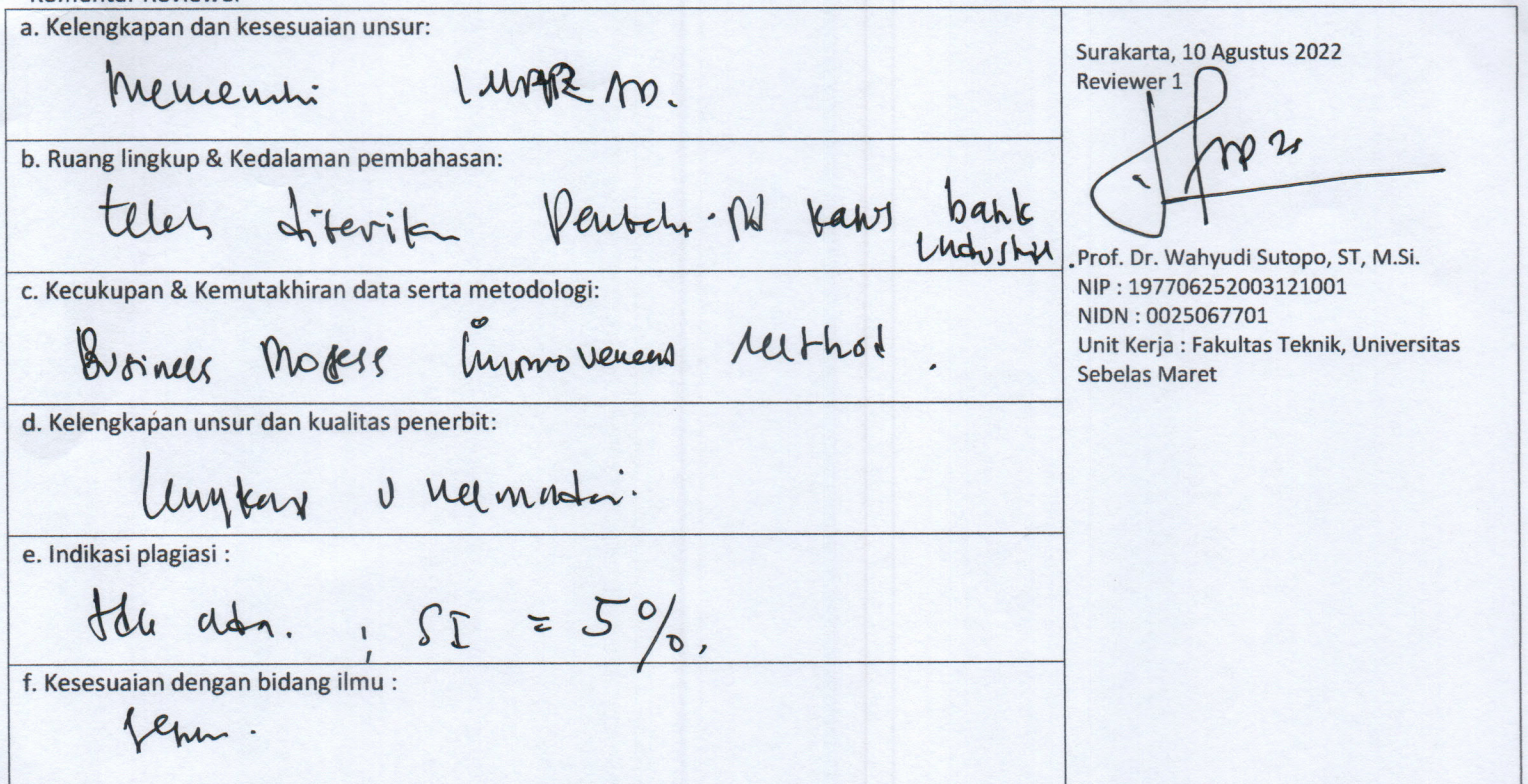 Komentar Reviewer
a. Kelengkapan dan kesesuaian unsur:
Memenuhi IMRAD.
b. Ruang lingkup & Kedalaman pembahasan:
telah kasus bank
Industri
c. Kecukupan & Kemutakhiran data serta metodologi:
Business Process Improvement Method.
d. Kelengkapan unsur dan kualitas penerbit:
Lengkap
e. Indikasi plagiasi :
tdk ada. ; SI = 5%.
f. Kesesuaian dengan bidang ilmu :
Surakarta, 10 Agustus 2022
Reviewer 1
Prof. Dr. Wahyudi Sutopo, ST, M.Si.
NIP : 197706252003121001
NIDN : 0025067701
Unit Kerja : Fakultas Teknik, Universitas
Sebelas Maret